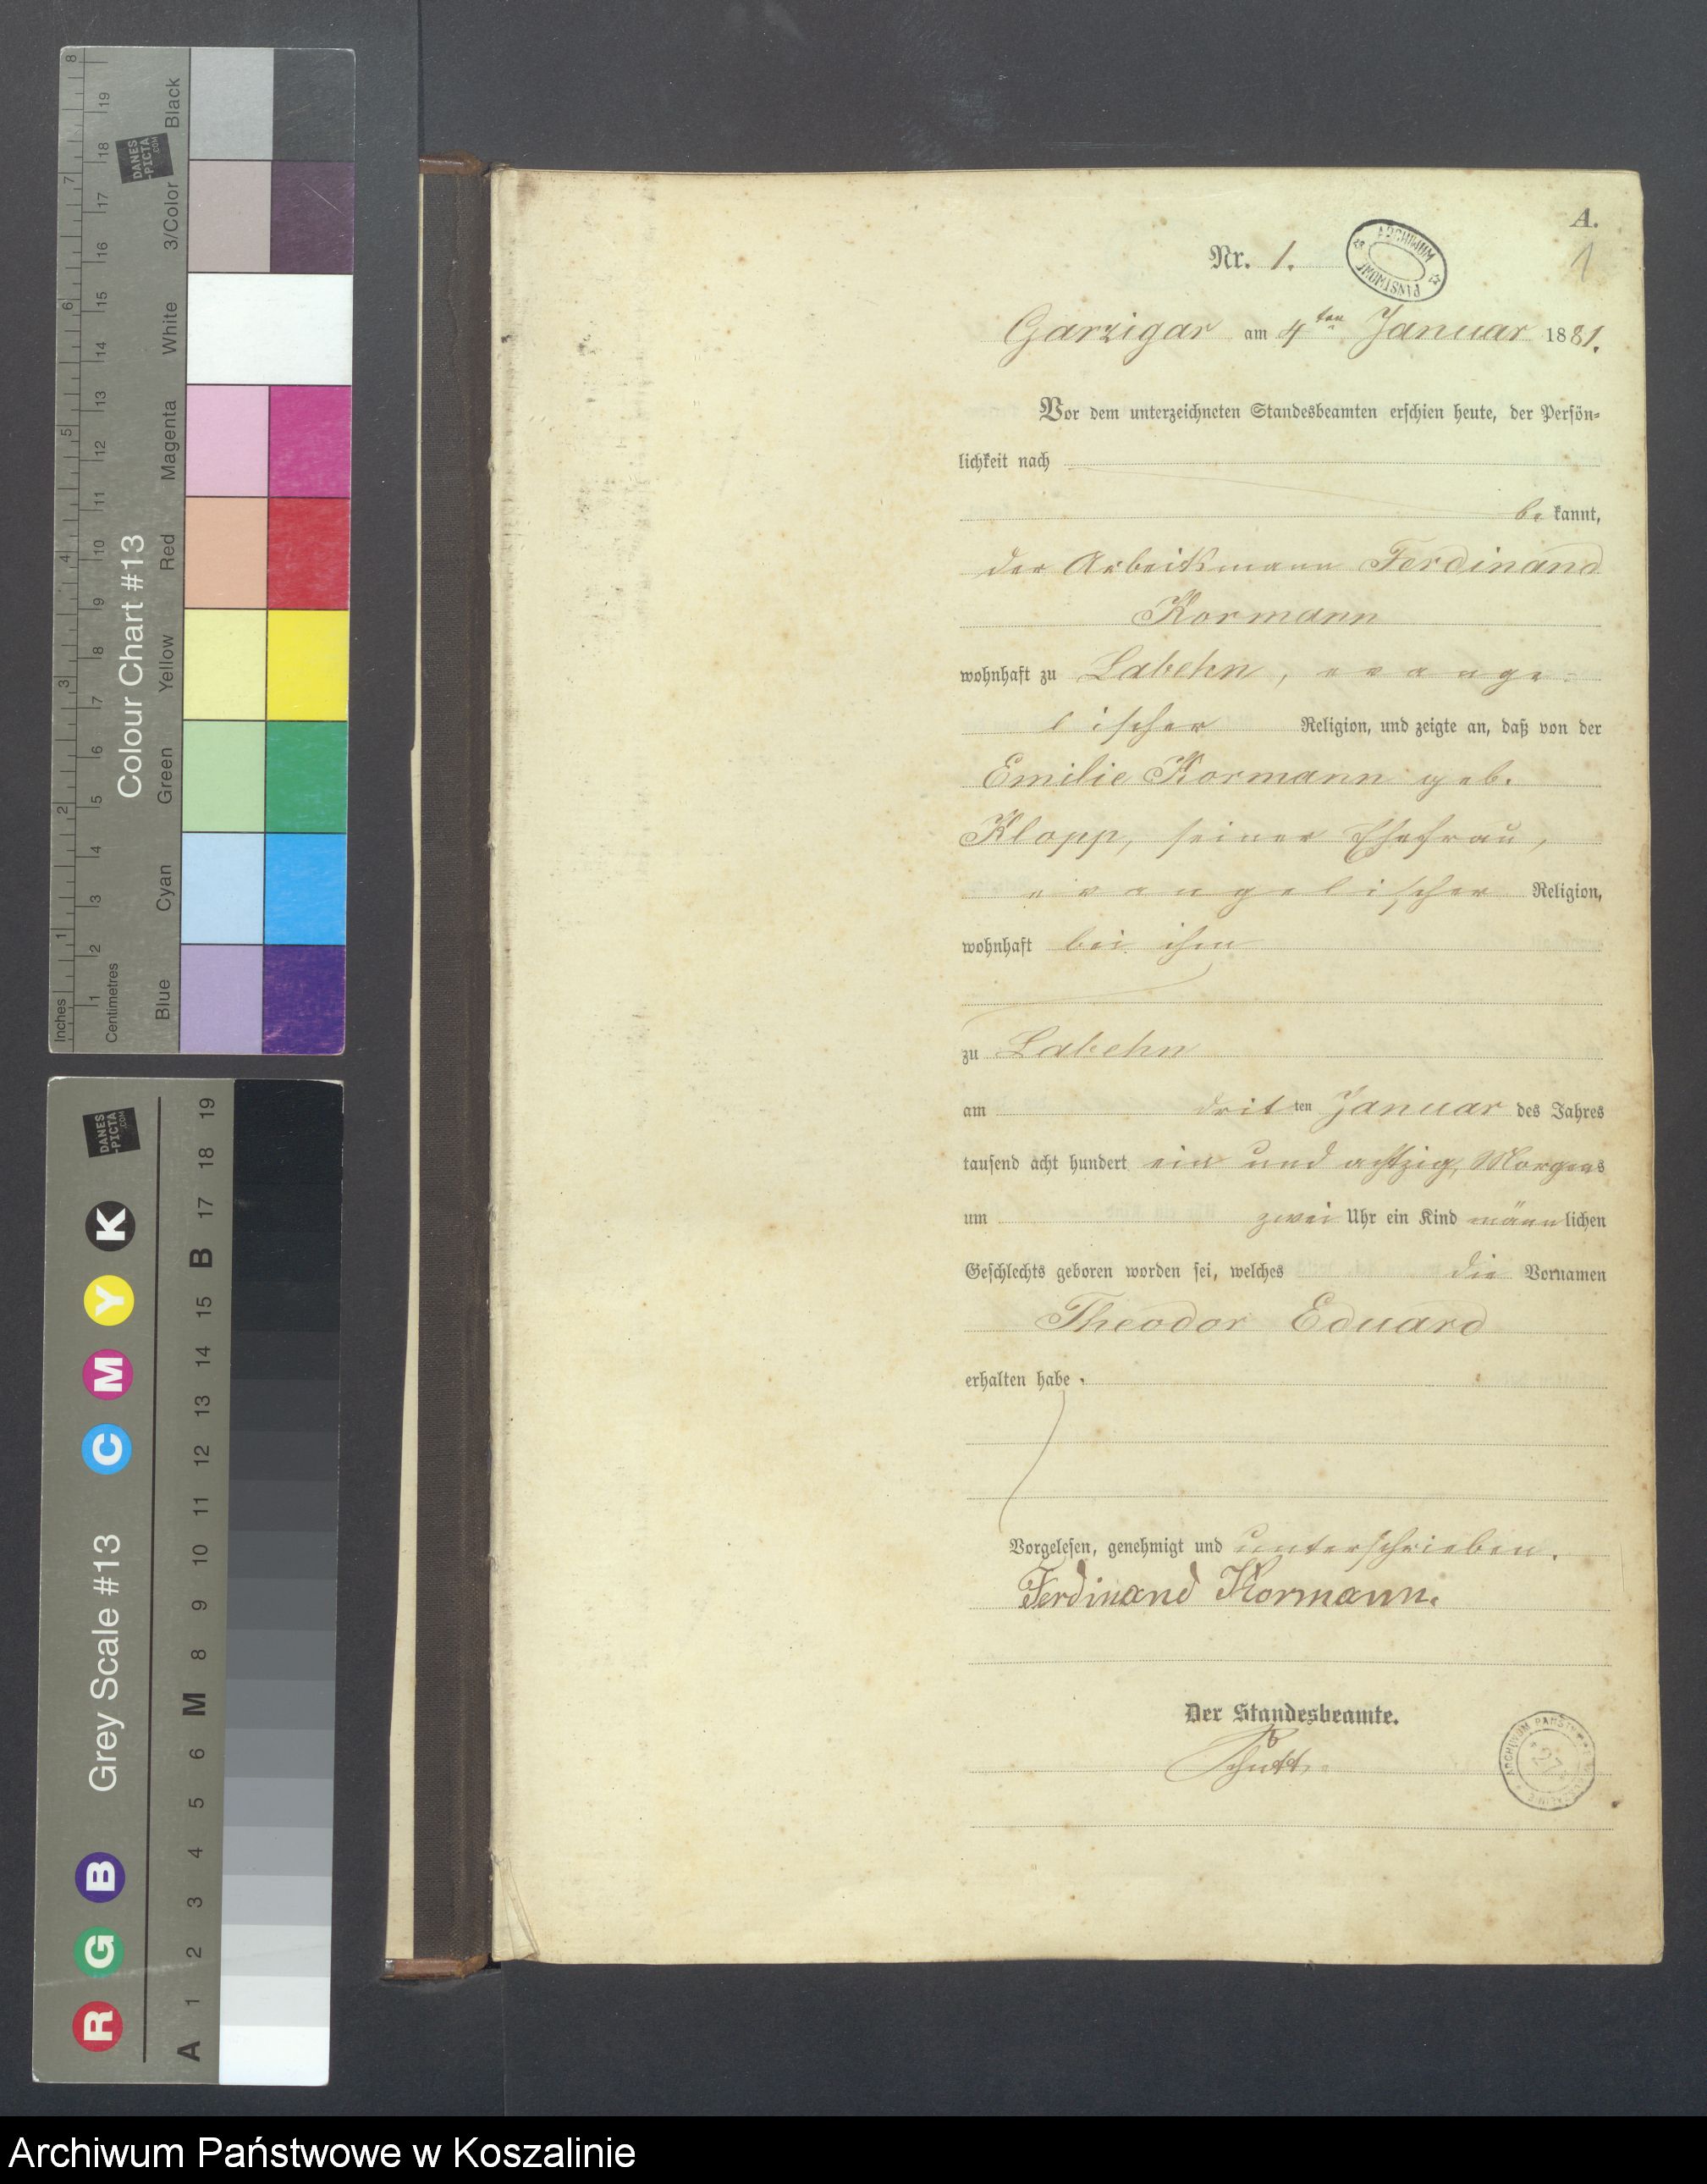 A.
Nr. 1.
ARCHIWUM PAŃSTWOWE
1
Garzigar am 4ten Januar 1881.
Vor dem unterzeichneten Standesbeamten erschien heute, der Persön=
lichkeit nach
be kannt,
der Arbeitsmann Ferdinand
Kormann
wohnhaft zu Labehn, evange-
lischer Religion, und zeigte an, daß von der
Emilie Kormann geb.
Klopp, seiner Ehefrau,
evangelischer Religion,
wohnhaft bei ihm
zu Labehn
am dritten Januar des Jahres
tausend acht hundert ein und achtzig, Morgens
um zwei Uhr ein Kind männlichen
Geschlechts geboren worden sei, welches die Vornamen
Theodor Eduard
erhalten habe.
Vorgelesen, genehmigt und unterschrieben.
Ferdinand Kormann.
Der Standesbeamte.
Colour Chart #13
Blue Cyan Green Yellow Red Magenta White 3/Color Black
Inches 1 2 3 4 5 6 7 8
Centimetres 1 2 3 4 5 6 7 8 9 10 11 12 13 14 15 16 17 18 19
DANES
-PICTA
.COM
Grey Scale #13
R G B C M Y K
A 1 2 3 4 5 6 M 8 9 10 11 12 13 14 15 B 17 18 19
DANES
-PICTA
.COM
Archiwum Państwowe w Koszalinie